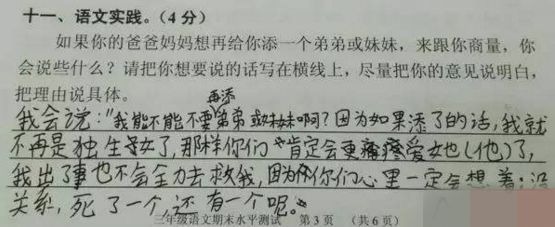 十一、语文实践。（4分）
如果你的爸爸妈妈想再给你添一个弟弟或妹妹，来跟你商量，你
会说些什么？请把你想要说的话写在横线上，尽量把你的意见说明白，
把理由说具体。
再添
我会说："我能不能不要弟弟或妹妹啊？因为如果添了的话，我就
不再是独生女了，那样你们肯定会更疼爱她(他)了，
我出了事也不会全力去救我，因为你们心里一定会想着：没
关系，死了一个，还有一个呢。"
三年级语文期末水平测试 第3页 （共6页）